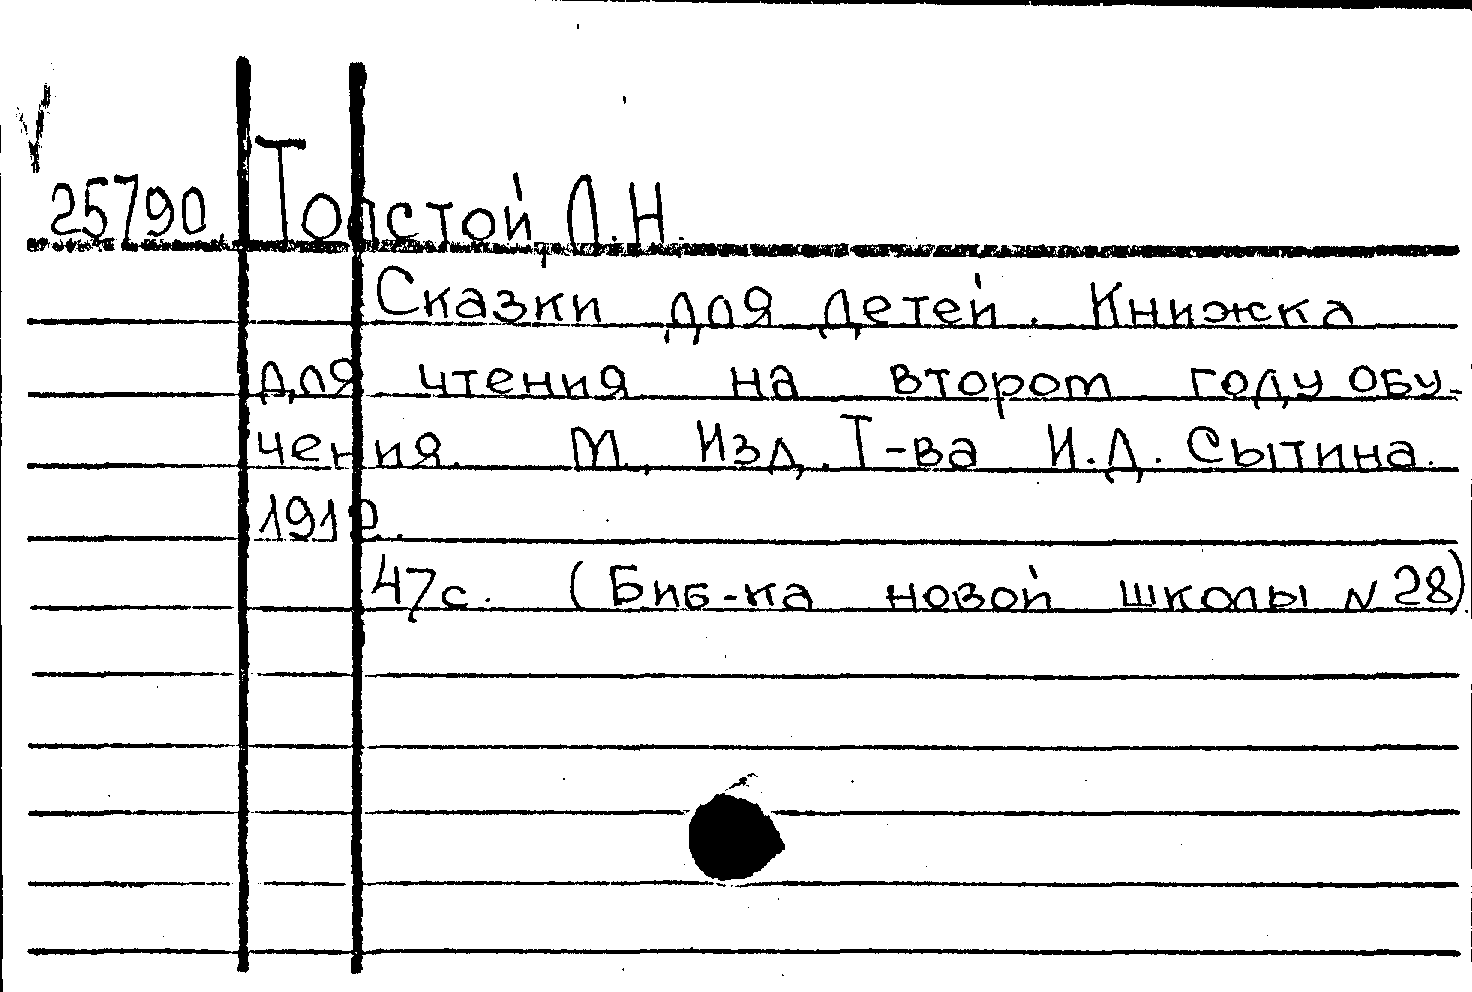 25790 Толстой, Л.Н.
Сказки для детей. Книжка
для чтения на втором году обу-
чения. М., Изд. Т-ва И.Д. Сытина.
47с. (Биб-ка новой школы N 28)